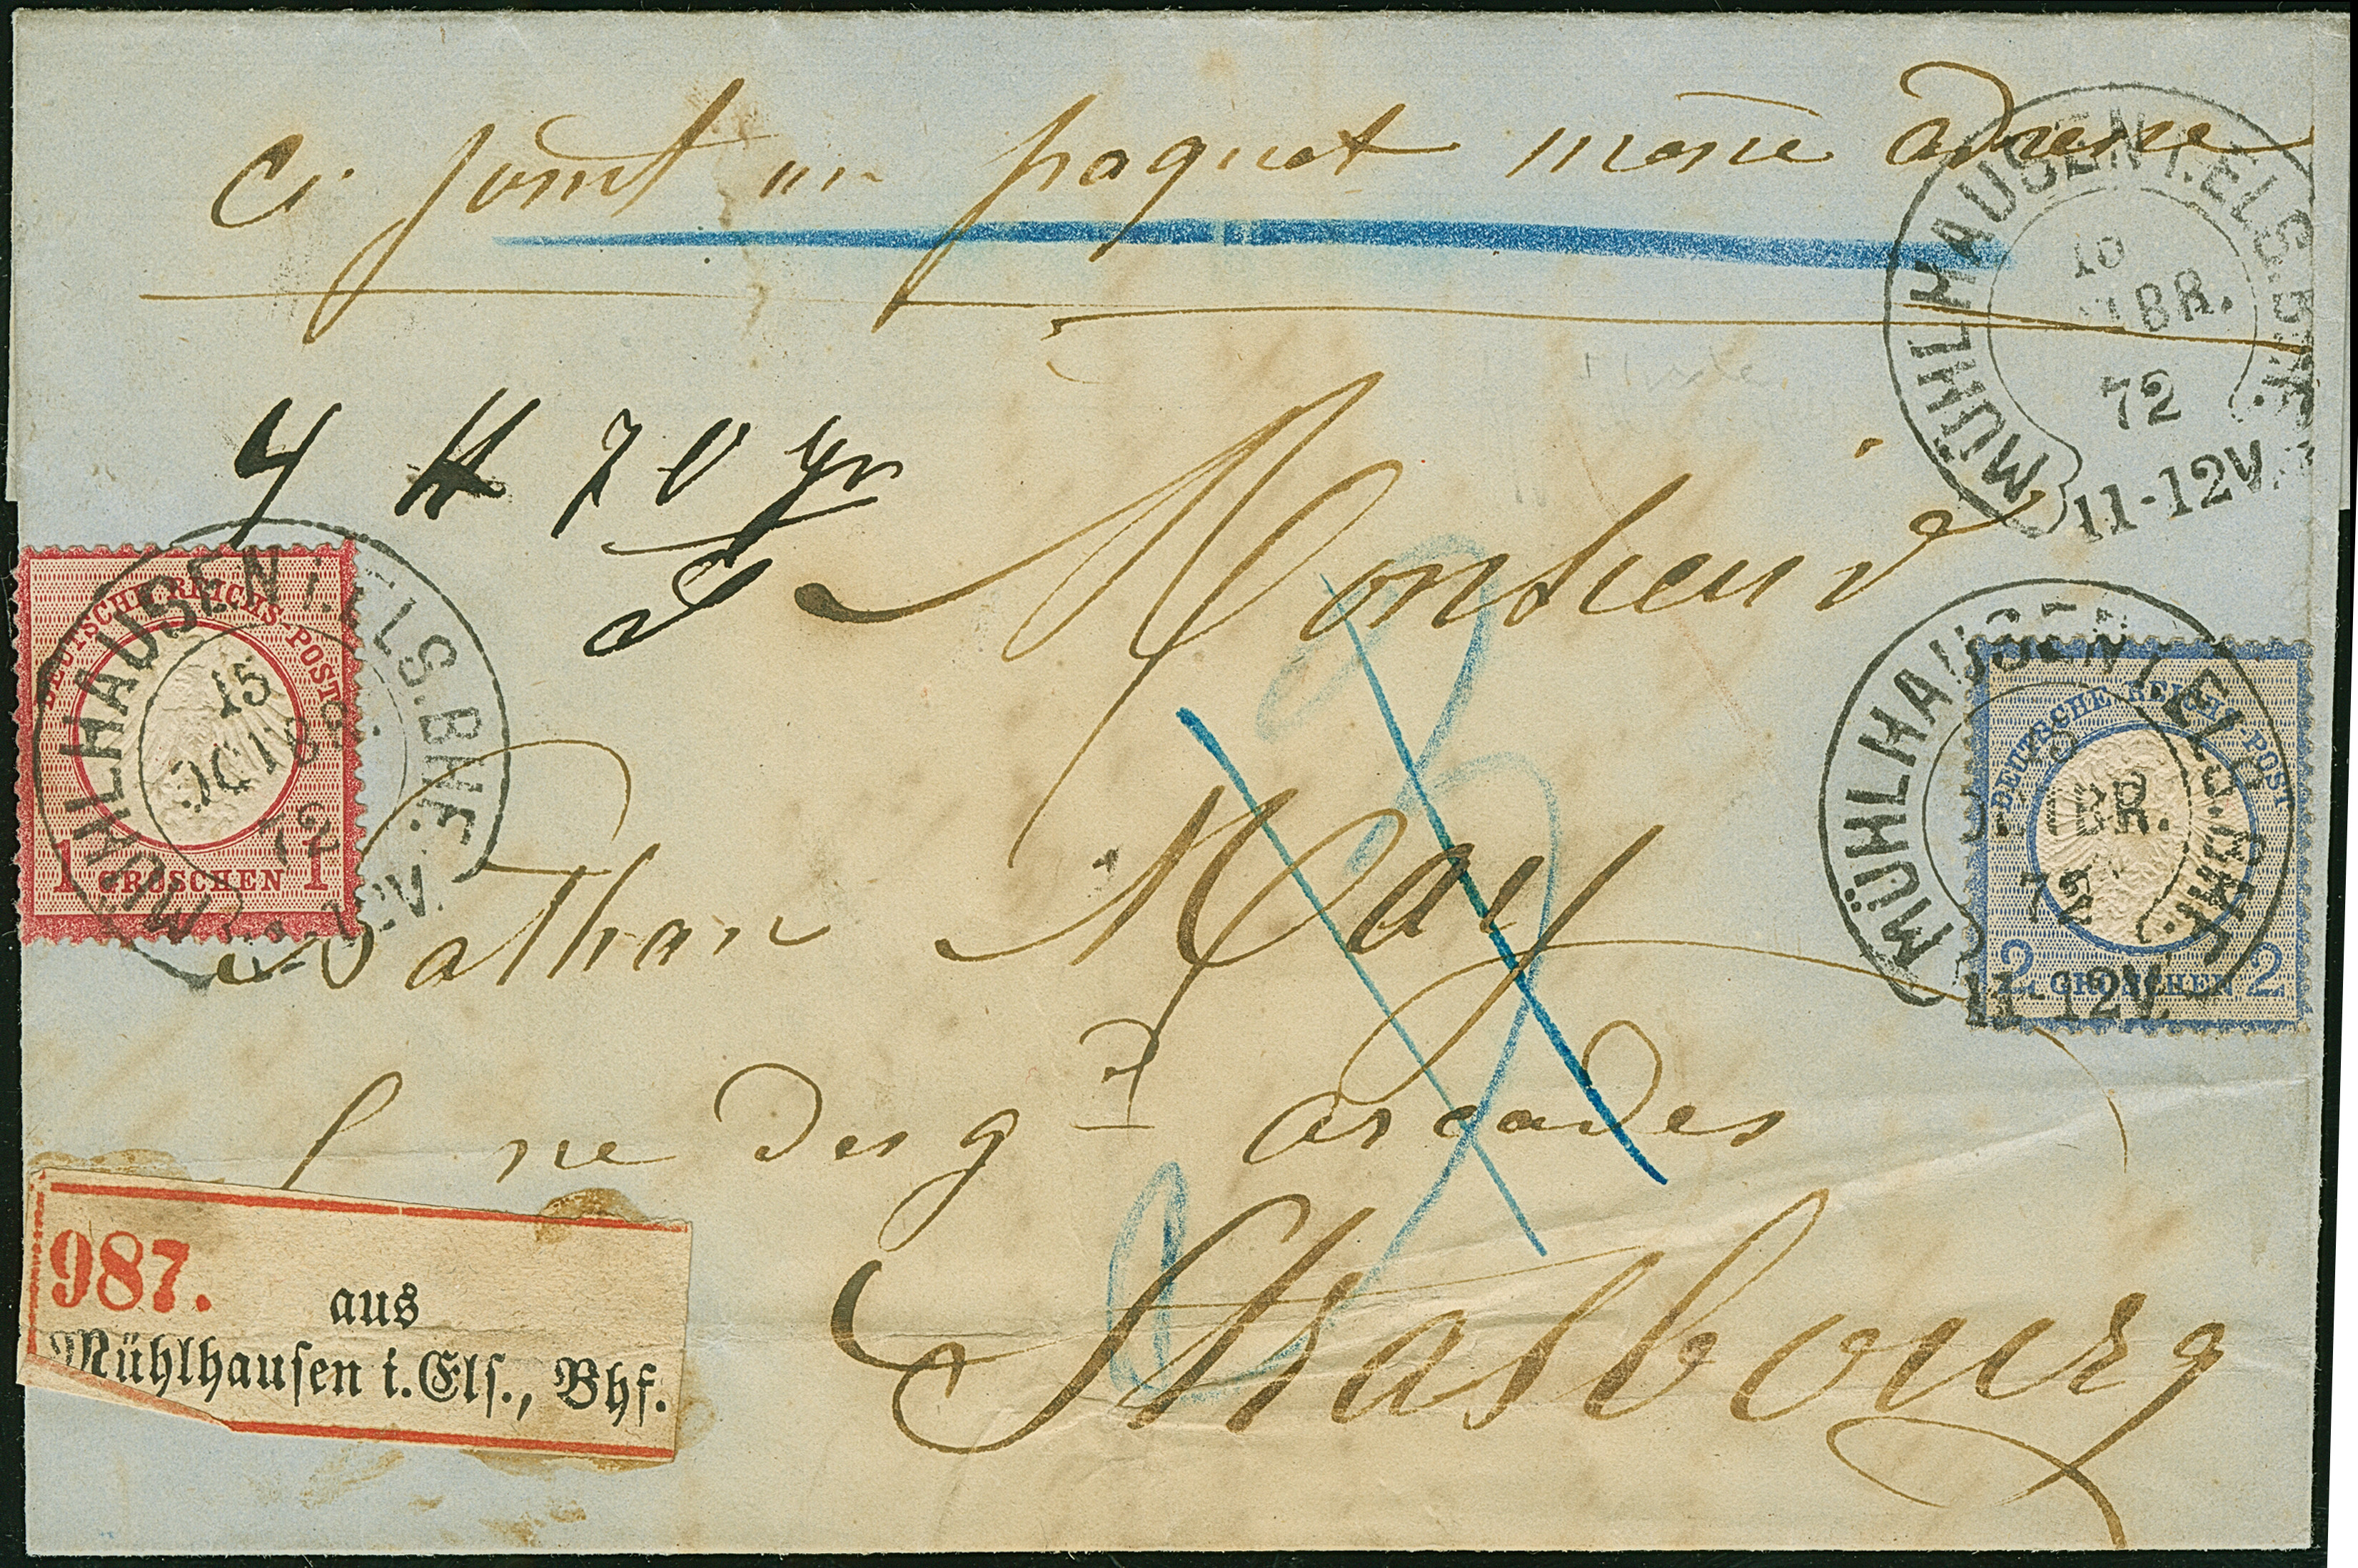 Ci joint un paquet même adresse
MÜHLHAUSEN I. ELS. BHF.
BR.
72
11-12V.
4 ℔ 70 gr
Monsieur
DEUTSCHE REICHS-POST
1 GROSCHEN 1
MÜHLHAUSEN I. ELS. BHF.
15
OCTBR.
72
DEUTSCHE REICHS-POST
2 GROSCHEN 2
MÜHLHAUSEN I. ELS. BHF.
BR.
72
11-12V.
Nathan May
rue des gdes arcades
Strasbourg
987.
aus
Mühlhausen i. Els., Bhf.